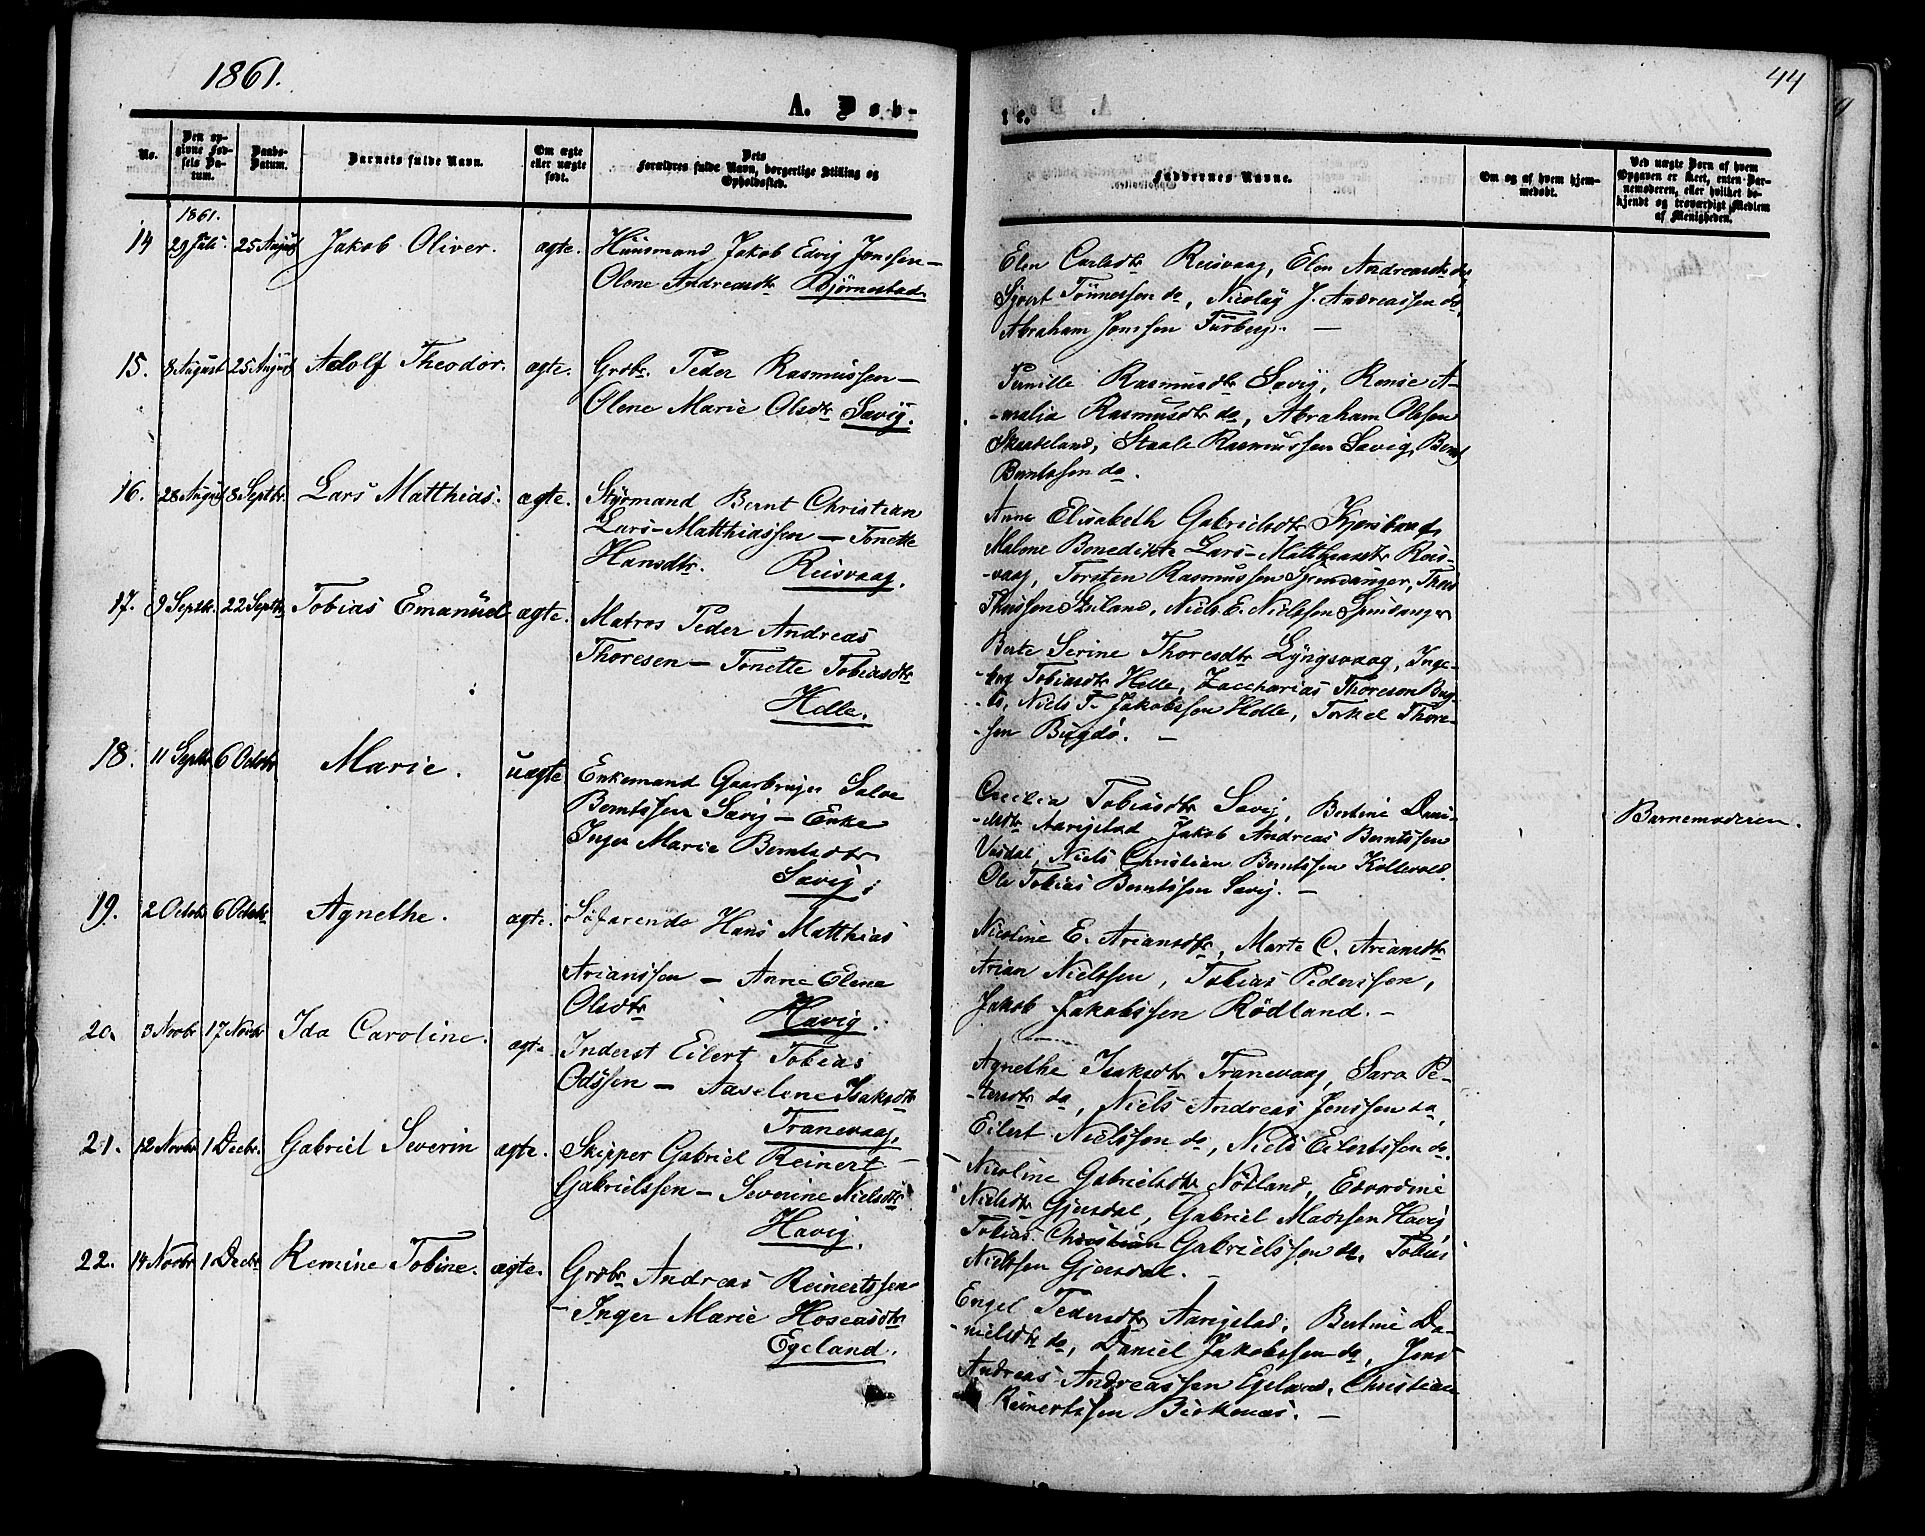 1861.
44
A. Døb-
te.
No.
Den op-
givne Fød-
sels Da-
tum.
Daabs-
Datum.
Barnets fulde Navn.
Om ægte
eller uægte
født.
Dets
Forældres fulde Navn, borgerlige Stilling og
Opholdssted.
Faddernes Navne.
Om og af hvem hjem-
medøbt.
Ved uægte Børn af hvem
Opgaven er skeet, enten Bar-
nemoderen, eller hvilket be-
kjendt og troværdigt Medlem
af Menigheden.
1861.
14 29 Juli 25 August Jakob Oliver. ægte. Huusmand Jakob Edvig Jonssen —
Olene Andreasdtr Bjørnestad
Elen Carlsdtr Reisvaag, Elen Andreasdtr do,
Sjvert Tönnessen do, Nicolay J. Andreassen do,
Abraham Jonssen Furberg. —
15. 8 August 25 August Adolf Theodor. ægte. Grbr. Peder Rasmussen —
Olene Marie Olsdtr Savig.
Pernille Rasmusdtr Savig, Renie A-
-malia Rasmusdtr do, Abraham Olssen
Skaadeland, Staale Rasmussen Savig, Bernt
Berntssen do.
16. 28 August 8 Septbr. Lars Matthias. ægte. Styrmand Bernt Christian
Lars-Matthiassen — Tonette
Hansdtr. Reisvaag.
Anne Elisabeth Gabrielsdtr
Malene Benedikte Lars-Matthiasdtr Reis-
-vaag, Torsten Rasmussen Spindsanger,
Niels E. Nielssen
17. 9 Septbr. 22 Septbr Tobias Emanuel ægte. Matros Peder Andreas
Thoresen — Tonette Tobiasdtr
Helle.
Berte Serine Thoresdtr Lyngsvaag, Inge-
-borg Tobiasdtr Helle, Zaccharias Thoresen Bug-
-dö, Niels T. Jakobssen Helle, Torkel Thore-
-sen Bugdö. —
18. 11 Septbr 6 Octobr Marie. uægte Enkemand Gaardbruger Salve
Berntssen Savig — Enke
Inger Marie Berntsdtr
Savig.
Cecilia Tobiasdtr Savig, Bertine Dani-
-elsdtr Aarigstad, Jakob Andreas Berntssen
Vasdal, Niels Christian Berntssen Kollevold.
Ole Tobias Berntssen Savig. —
Barnemoderen.
19. 2 Octobr 6 Octobr Agnethe. ægte. Søfarende Hans Matthias
Arianssen — Anne Elene
Olsdtr Havig.
Nicoline E. Ariansdtr, Marte C. Ariansdtr
Arian Nielssen, Tobias Pederssen,
Jakob Jakobssen Rödland. —
20. 3 Novbr 17 Novbr Ida Caroline. ægte. Inderst Eilert Tobias
Odssen — Aaselene Isaksdtr
Tranevaag.
Agnethe Isaksdtr Tranevaag, Sara Pe-
-tersdtr do, Niels Andreas Jenssen do,
Eilert Nielssen do, Niels Eilertssen do.
21. 12 Novbr 1 Decbr. Gabriel Severin ægte. Skipper Gabriel Reinert
Gabrielssen — Severine Nielsdtr
Havig.
Nicoline Gabrielsdtr Nödland, Edvardine
Nielsdtr Gjersdal, Gabriel Madssen Havig
Tobias Christian Gabrielssen do, Tobias
Nielssen Gjersdal. —
22. 14 Novbr 1 Decbr Remine Tobine. ægte. Grbr Andreas Reinertssen
— Inger Marie Hoseasdtr
Egeland.
Engel Pedersdtr Aarigstad, Bertine Da-
-nielsdtr do, Daniel Jakobssen do, Jens
Andreas Andreassen Egeland, Christian
Reinertssen Birkenæs. —